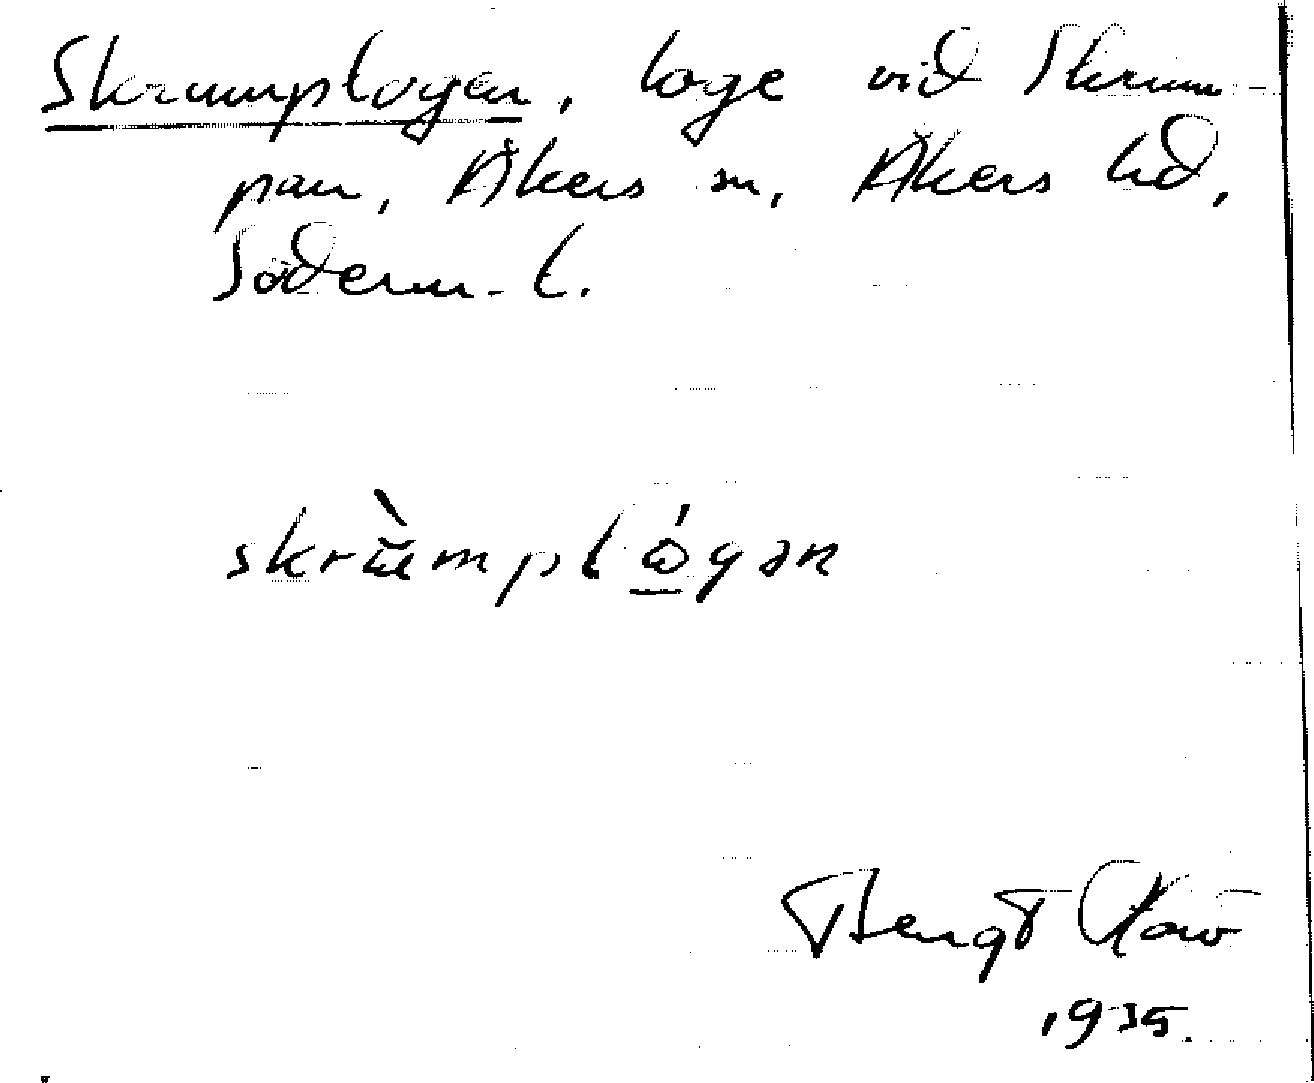 Skrumplogen, loge vid Skrum-
pan, Åkers sn, Åkers hd,
Söderm. l.
skrùmplógən
Bengt
1935.